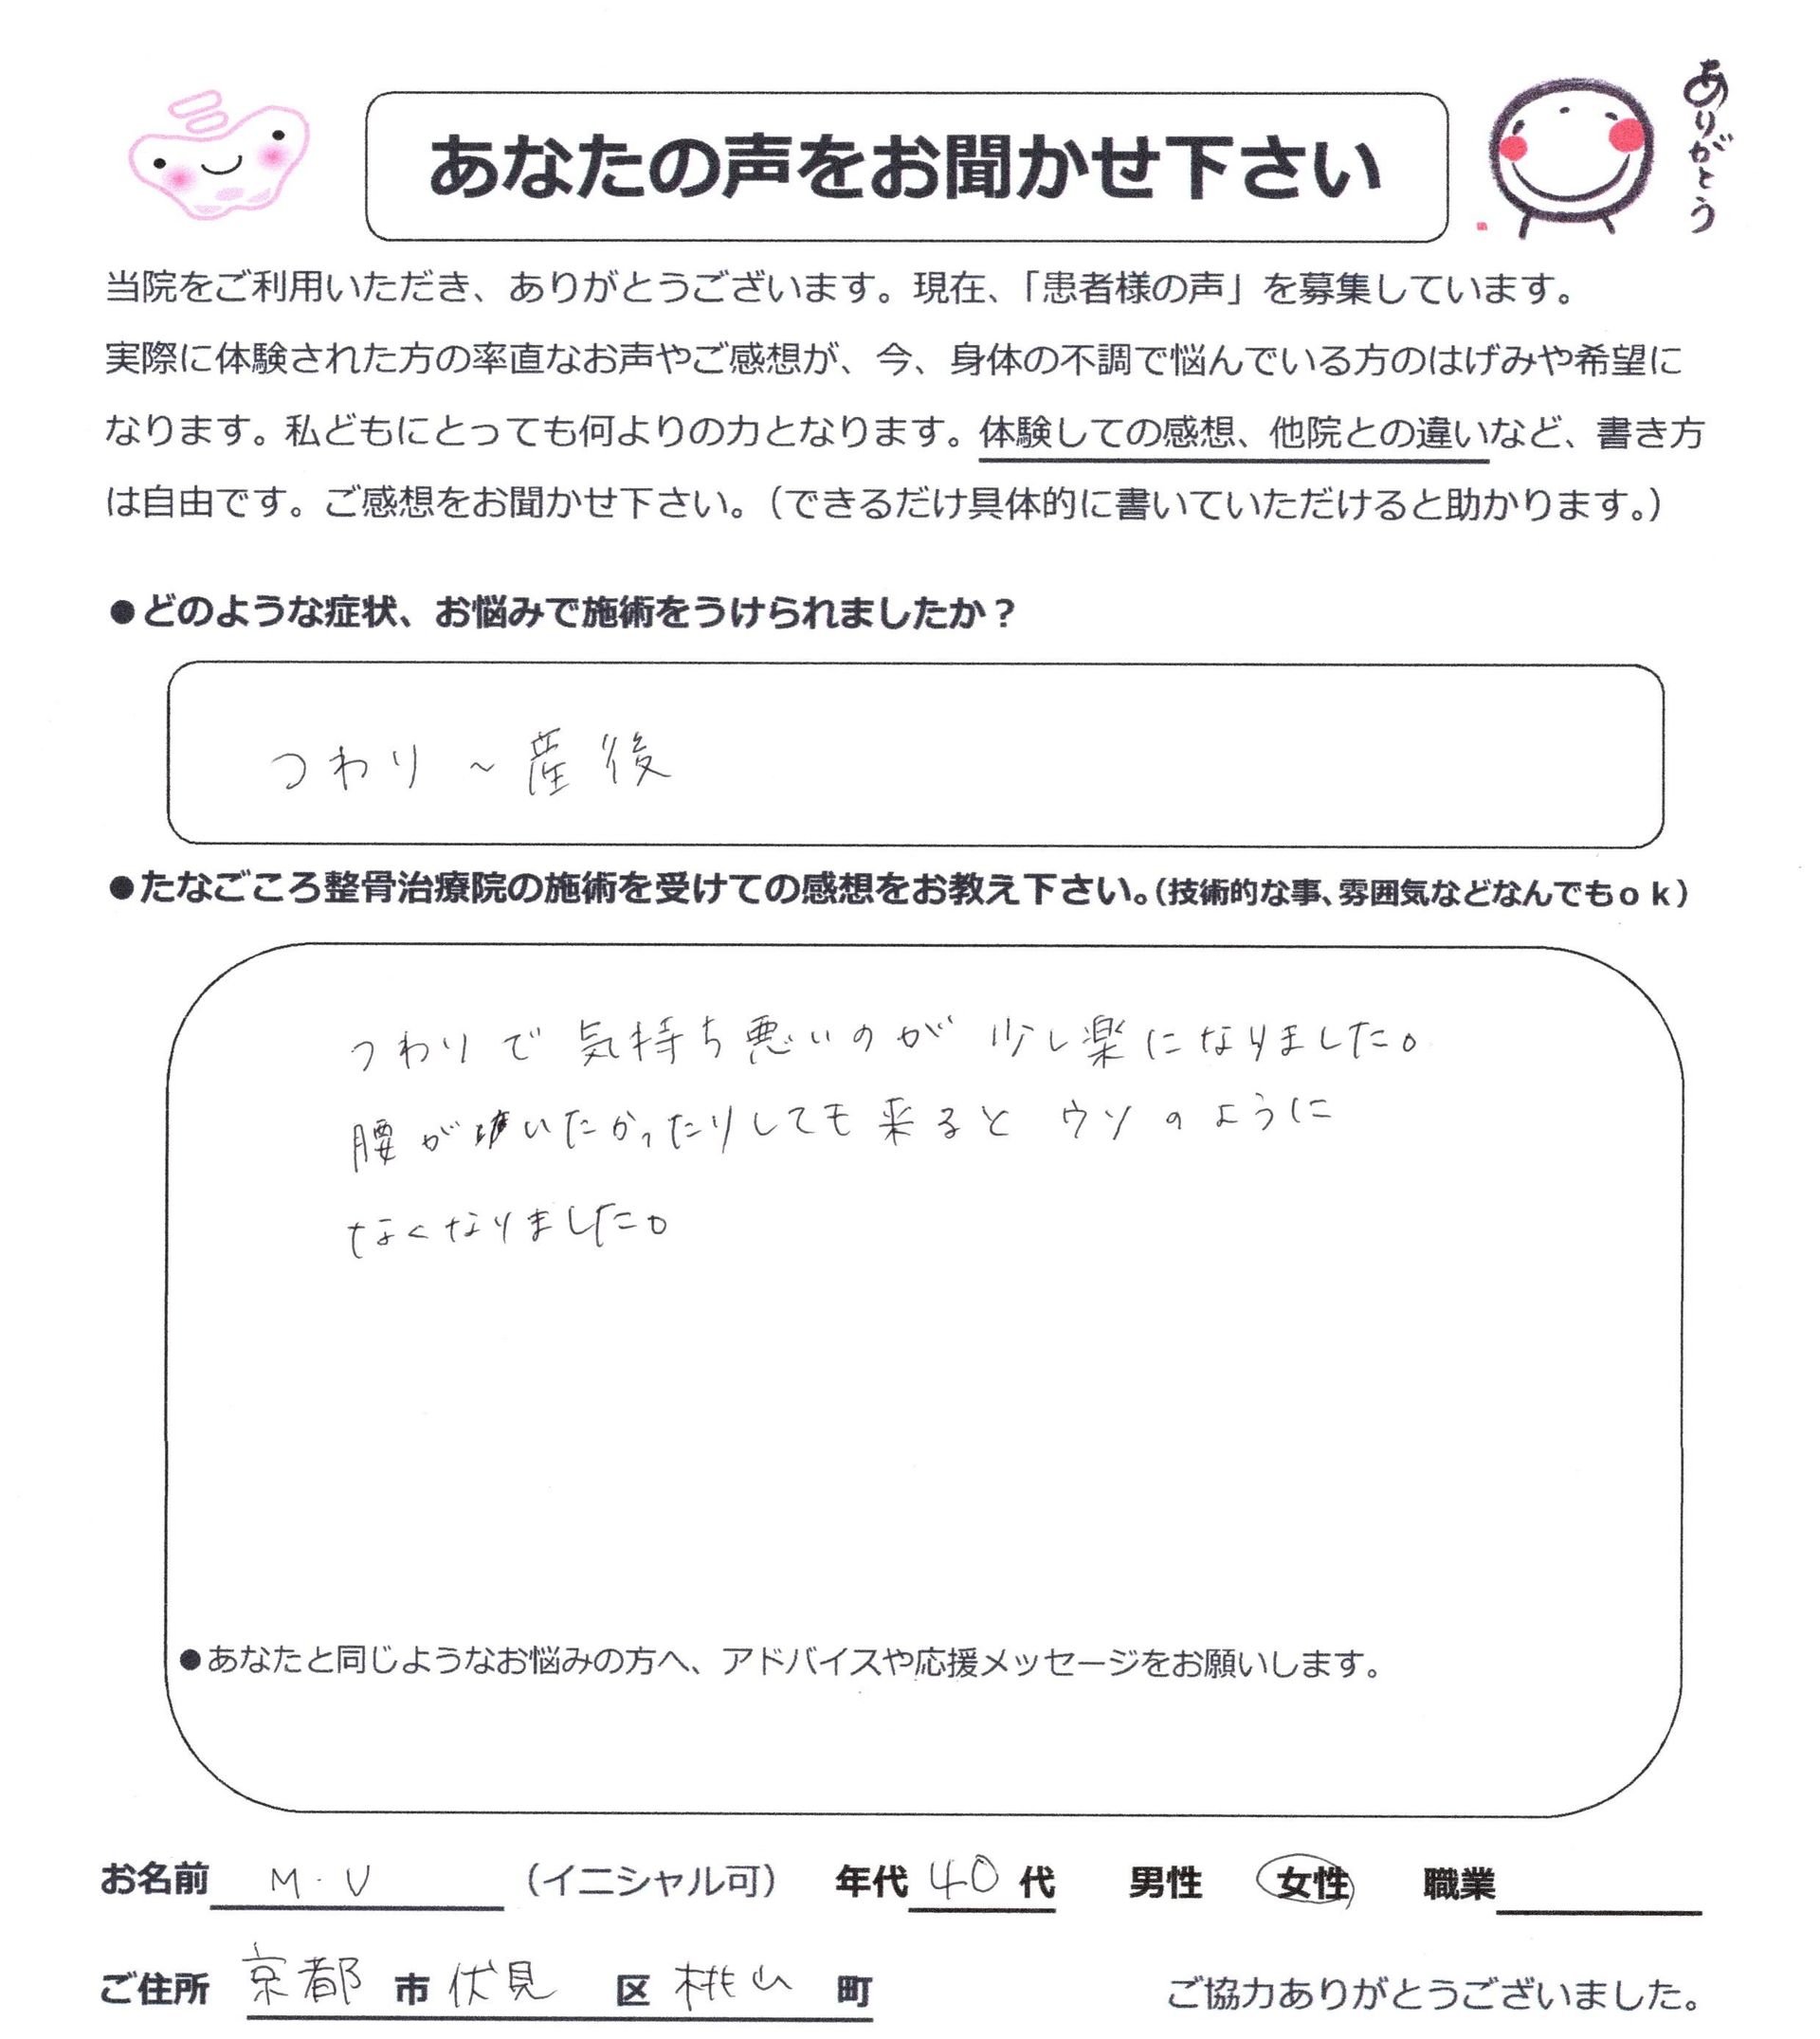 あなたの声をお聞かせ下さい
ありがとう
当院をご利用いただき、ありがとうございます。現在、「患者様の声」を募集しています。
実際に体験された方の率直なお声やご感想が、今、身体の不調で悩んでいる方のはげみや希望に
なります。私どもにとっても何よりの力となります。体験しての感想、他院との違いなど、書き方
は自由です。ご感想をお聞かせ下さい。（できるだけ具体的に書いていただけると助かります。）
●どのような症状、お悩みで施術をうけられましたか？
つわり～産後
●たなごころ整骨治療院の施術を受けての感想をお教え下さい。（技術的な事、雰囲気などなんでもｏｋ）
つわりで気持ち悪いのが少し楽になりました。
腰がいたかったりしても来るとウソのように
なくなりました。
●あなたと同じようなお悩みの方へ、アドバイスや応援メッセージをお願いします。
お名前 M.U （イニシャル可） 年代 40 代 男性 女性 職業
ご住所 京都 市 伏見 区 桃山 町 ご協力ありがとうございました。